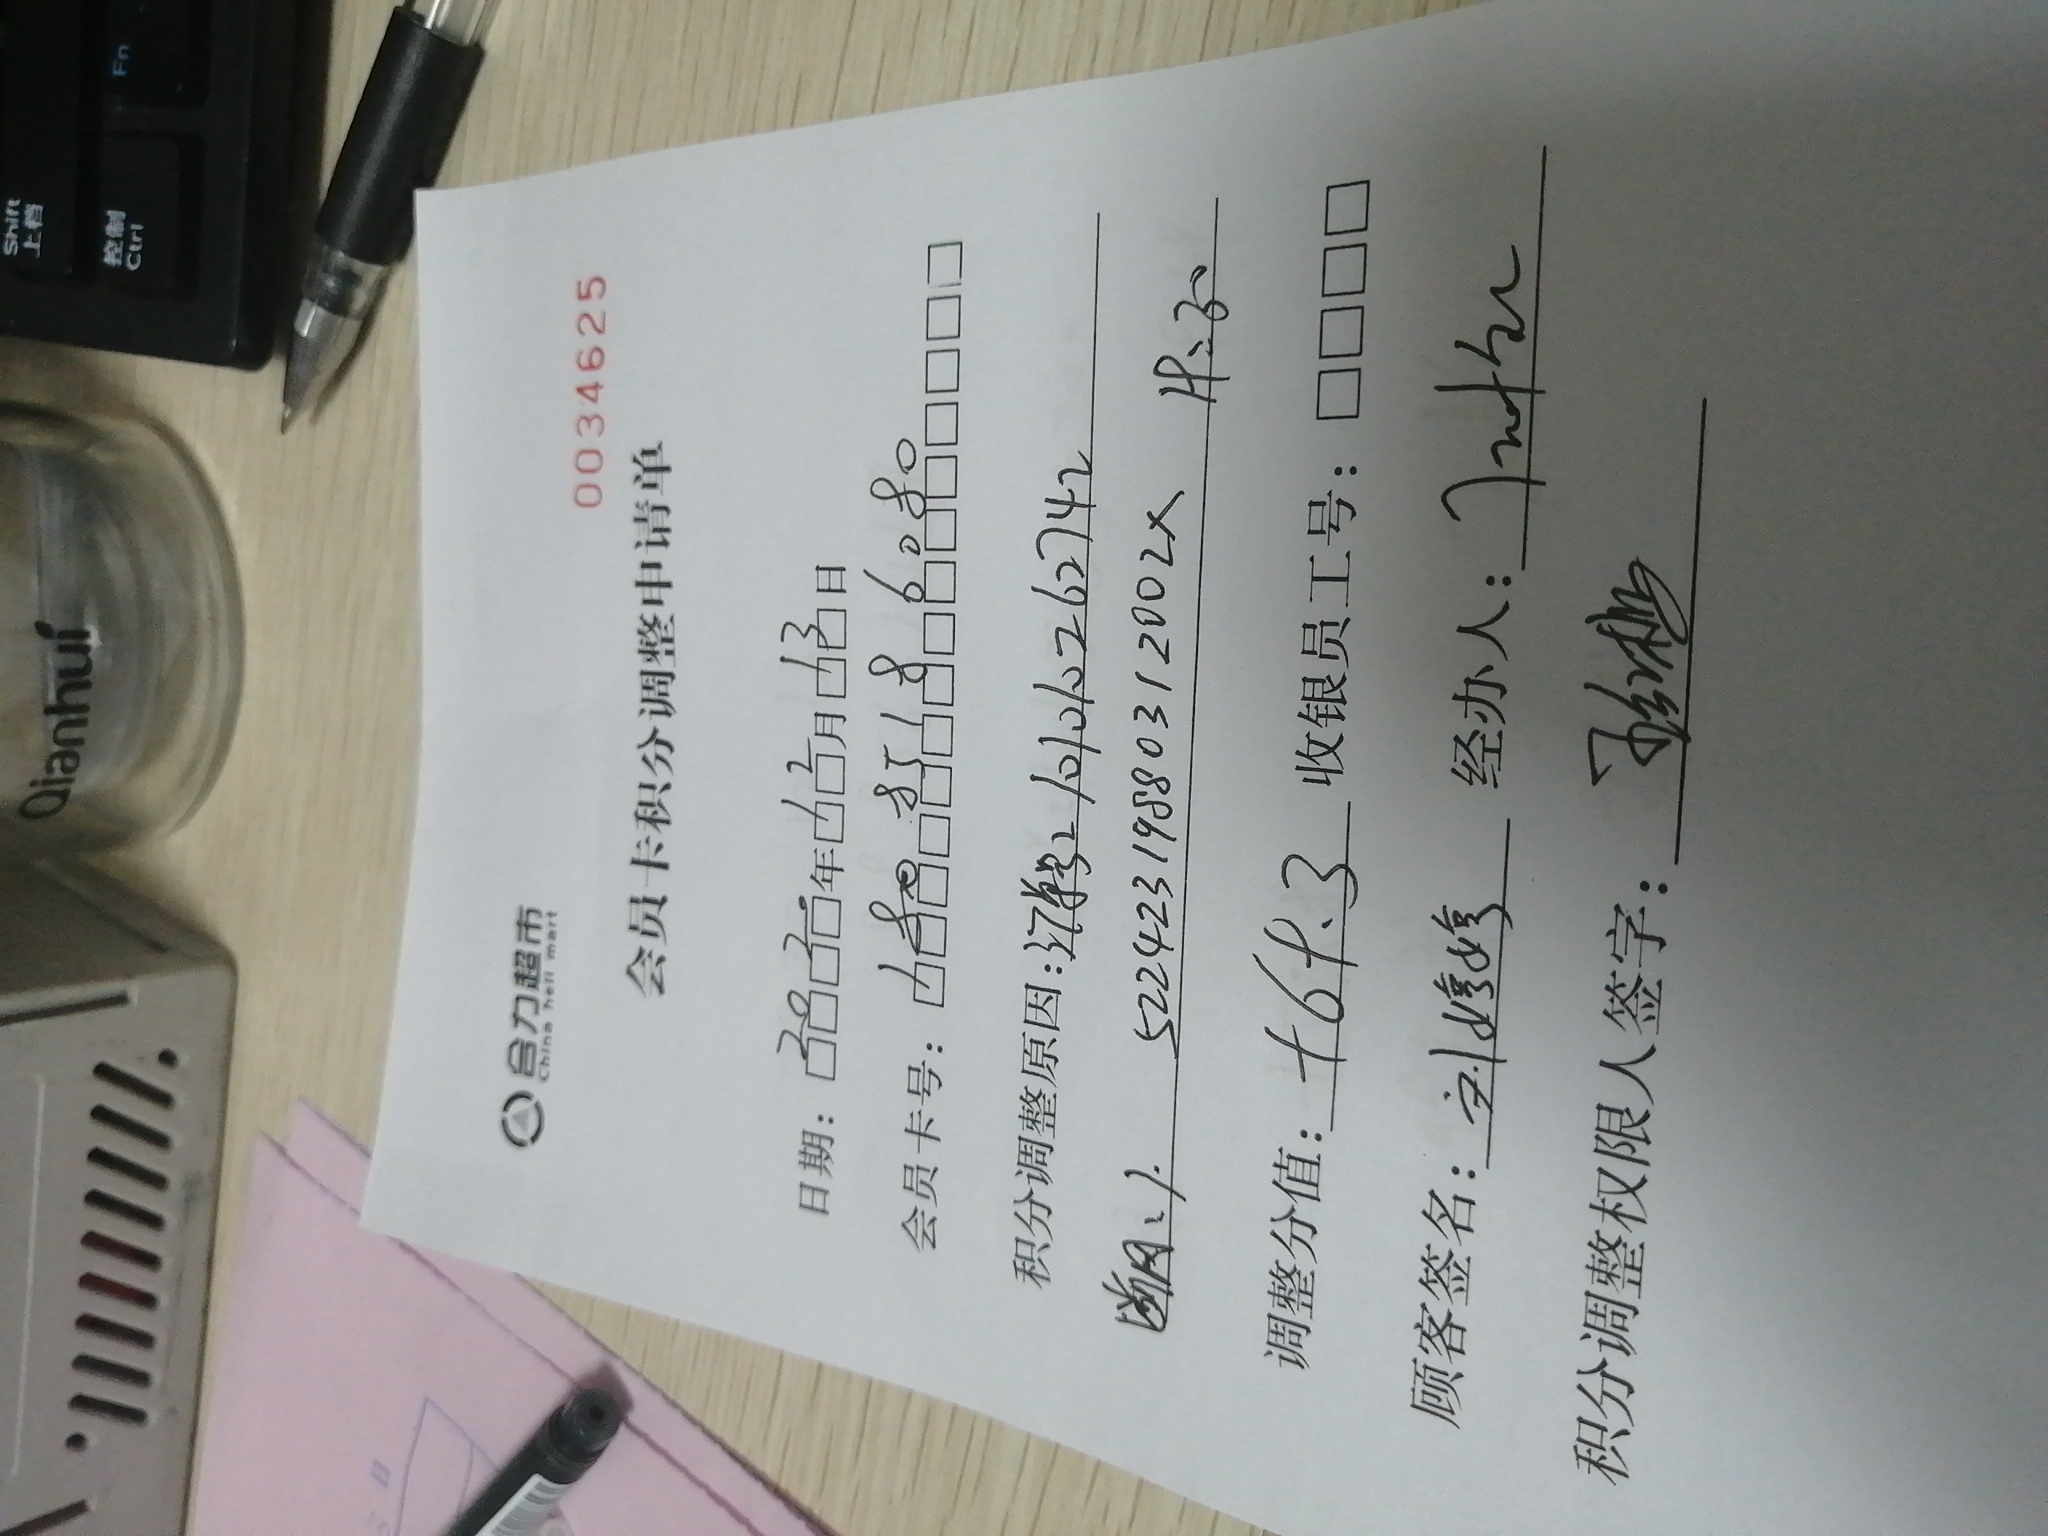 Shift
上档
Fn
控制
Ctrl
Qianhui
合力超市
China heli mart
0034625
会员卡积分调整申请单
日期：2020年12月13日
会员卡号：18085186080
积分调整原因：订单号21010102626742
522423198803112002X 补
调整分值：+69.3 收银员工号：
顾客签名：刘婷婷 经办人：
积分调整权限人签字：